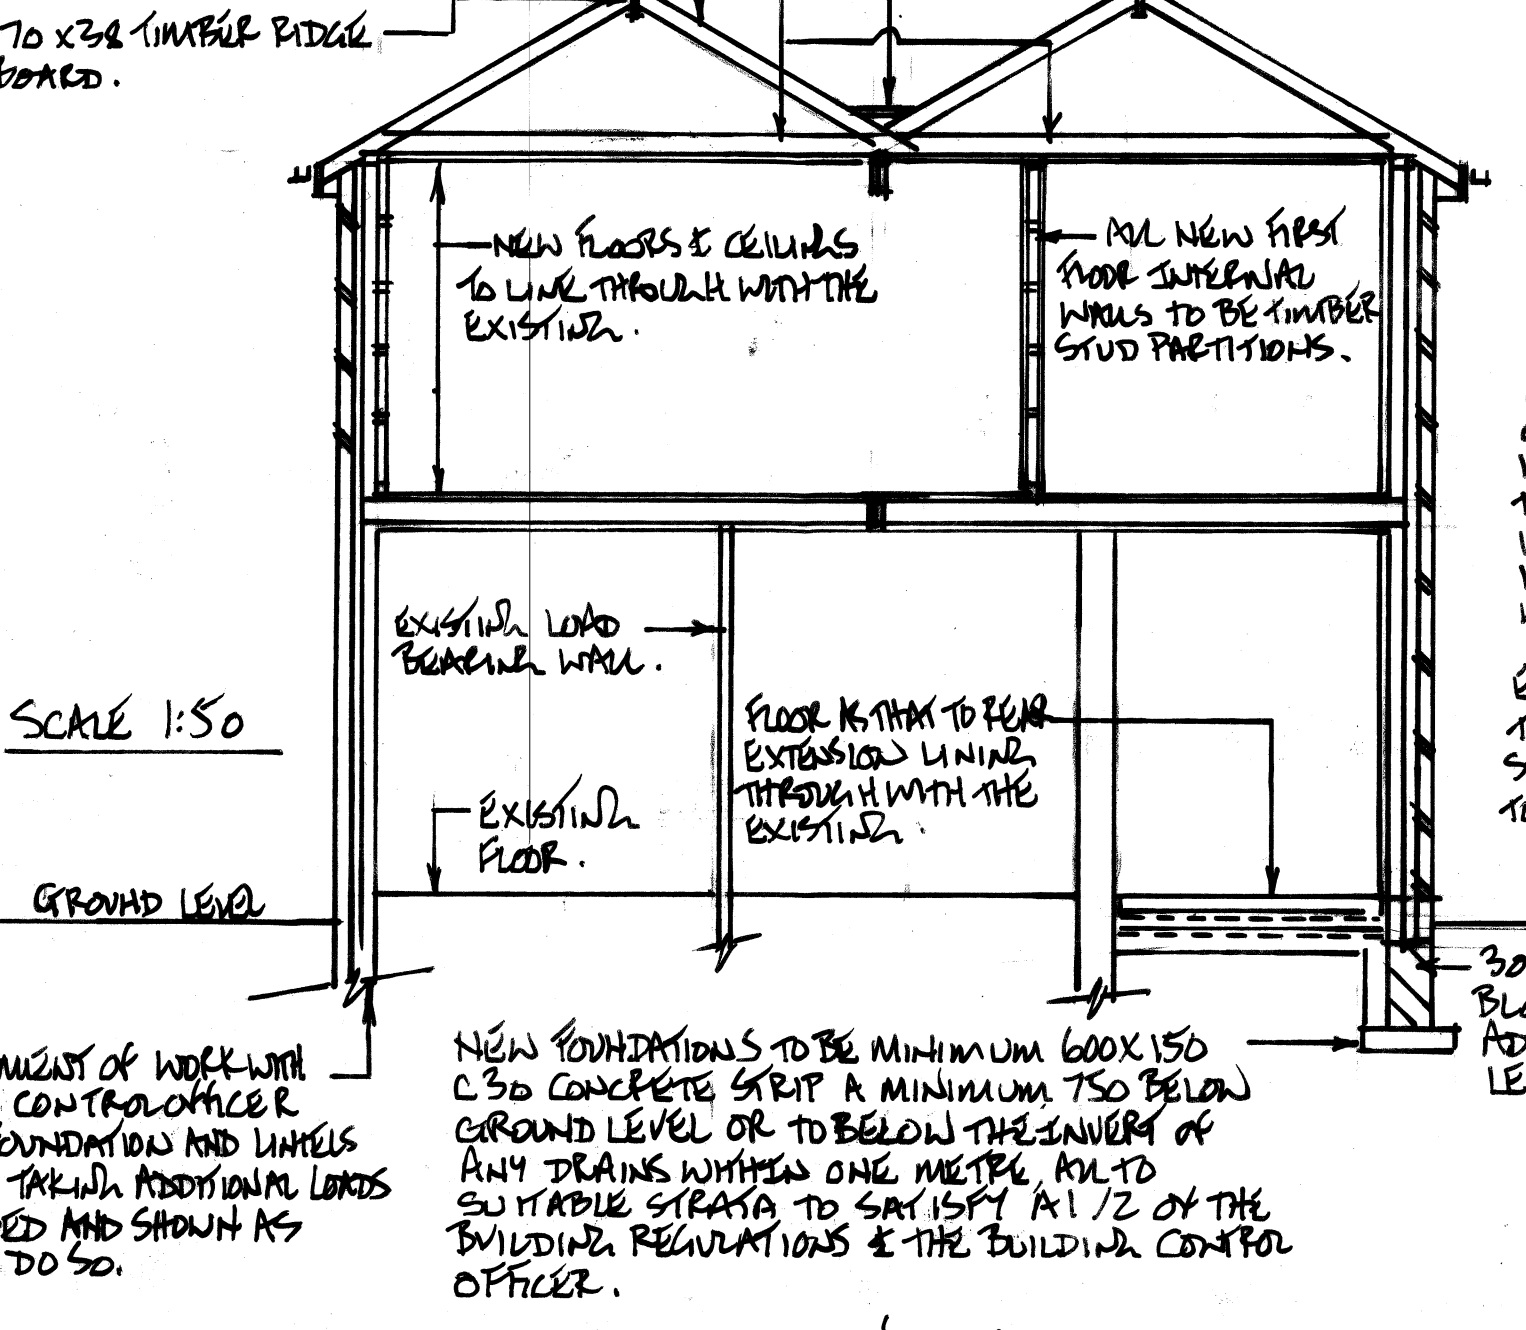 70 x 38 TIMBER RIDGE
BOARD.
NEW FLOORS & CEILINGS
TO LINE THROUGH WITH THE
EXISTING.
ALL NEW FIRST
FLOOR INTERNAL
WALLS TO BE TIMBER
STUD PARTITIONS.
EXISTING LOAD
BEARING WALL.
SCALE 1:50
FLOOR AS THAT TO REAR
EXTENSION LINING
THROUGH WITH THE
EXISTING.
EXISTING
FLOOR.
GROUND LEVEL
30
OF WORK WITH
CONTROL OFFICER
FOUNDATION AND LINTELS
TAKING ADDITIONAL LOADS
ED AND SHOWN AS
DO SO.
NEW FOUNDATIONS TO BE MINIMUM 600 X 150
C30 CONCRETE STRIP A MINIMUM 750 BELOW
GROUND LEVEL OR TO BELOW THE INVERT OF
ANY DRAINS WITHIN ONE METRE, ALL TO
SUITABLE STRATA TO SATISFY A1/2 OF THE
BUILDING REGULATIONS & THE BUILDING CONTROL
OFFICER.
BLO
AD
LE